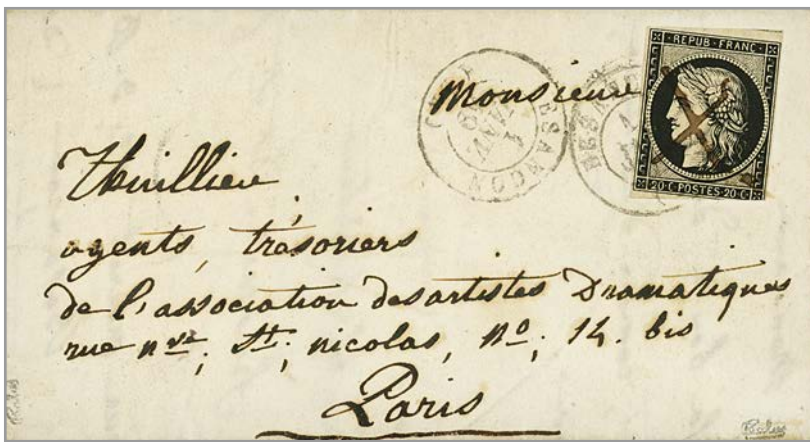 REPUB · FRANC ·
Monsieur
20 · C · POSTES · 20 · C
BESANÇON
Thuillier
agents, trésoriers
de l'association des artistes Dramatiques
rue nve; St; nicolas, No; 14. bis
Paris